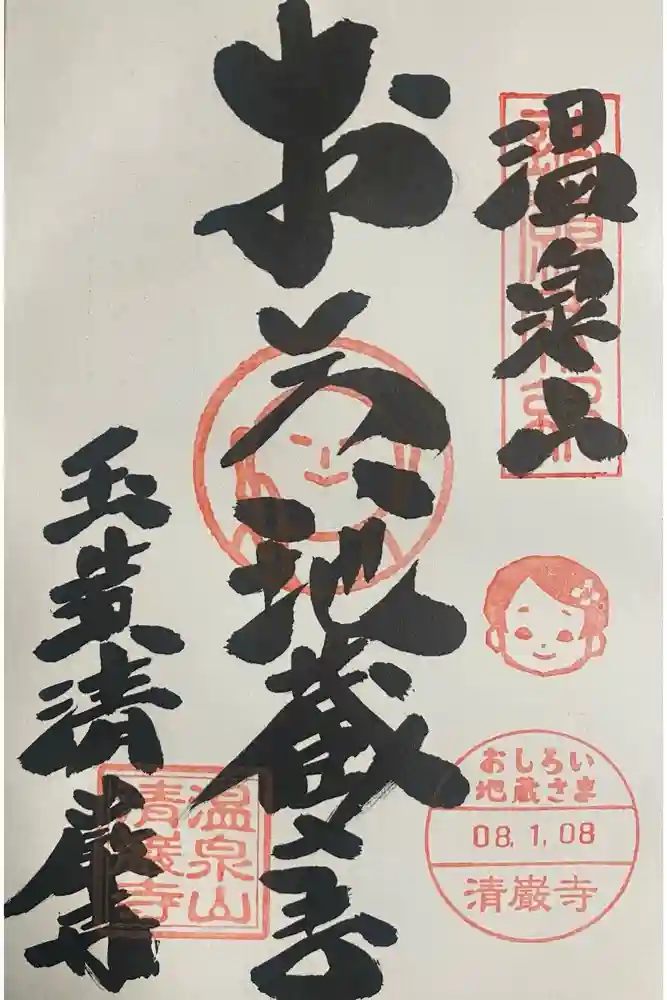 温泉山
お地蔵
玉造清巌寺
温泉山
清巌寺
おしろい
地蔵さま
08.1.08
清巌寺